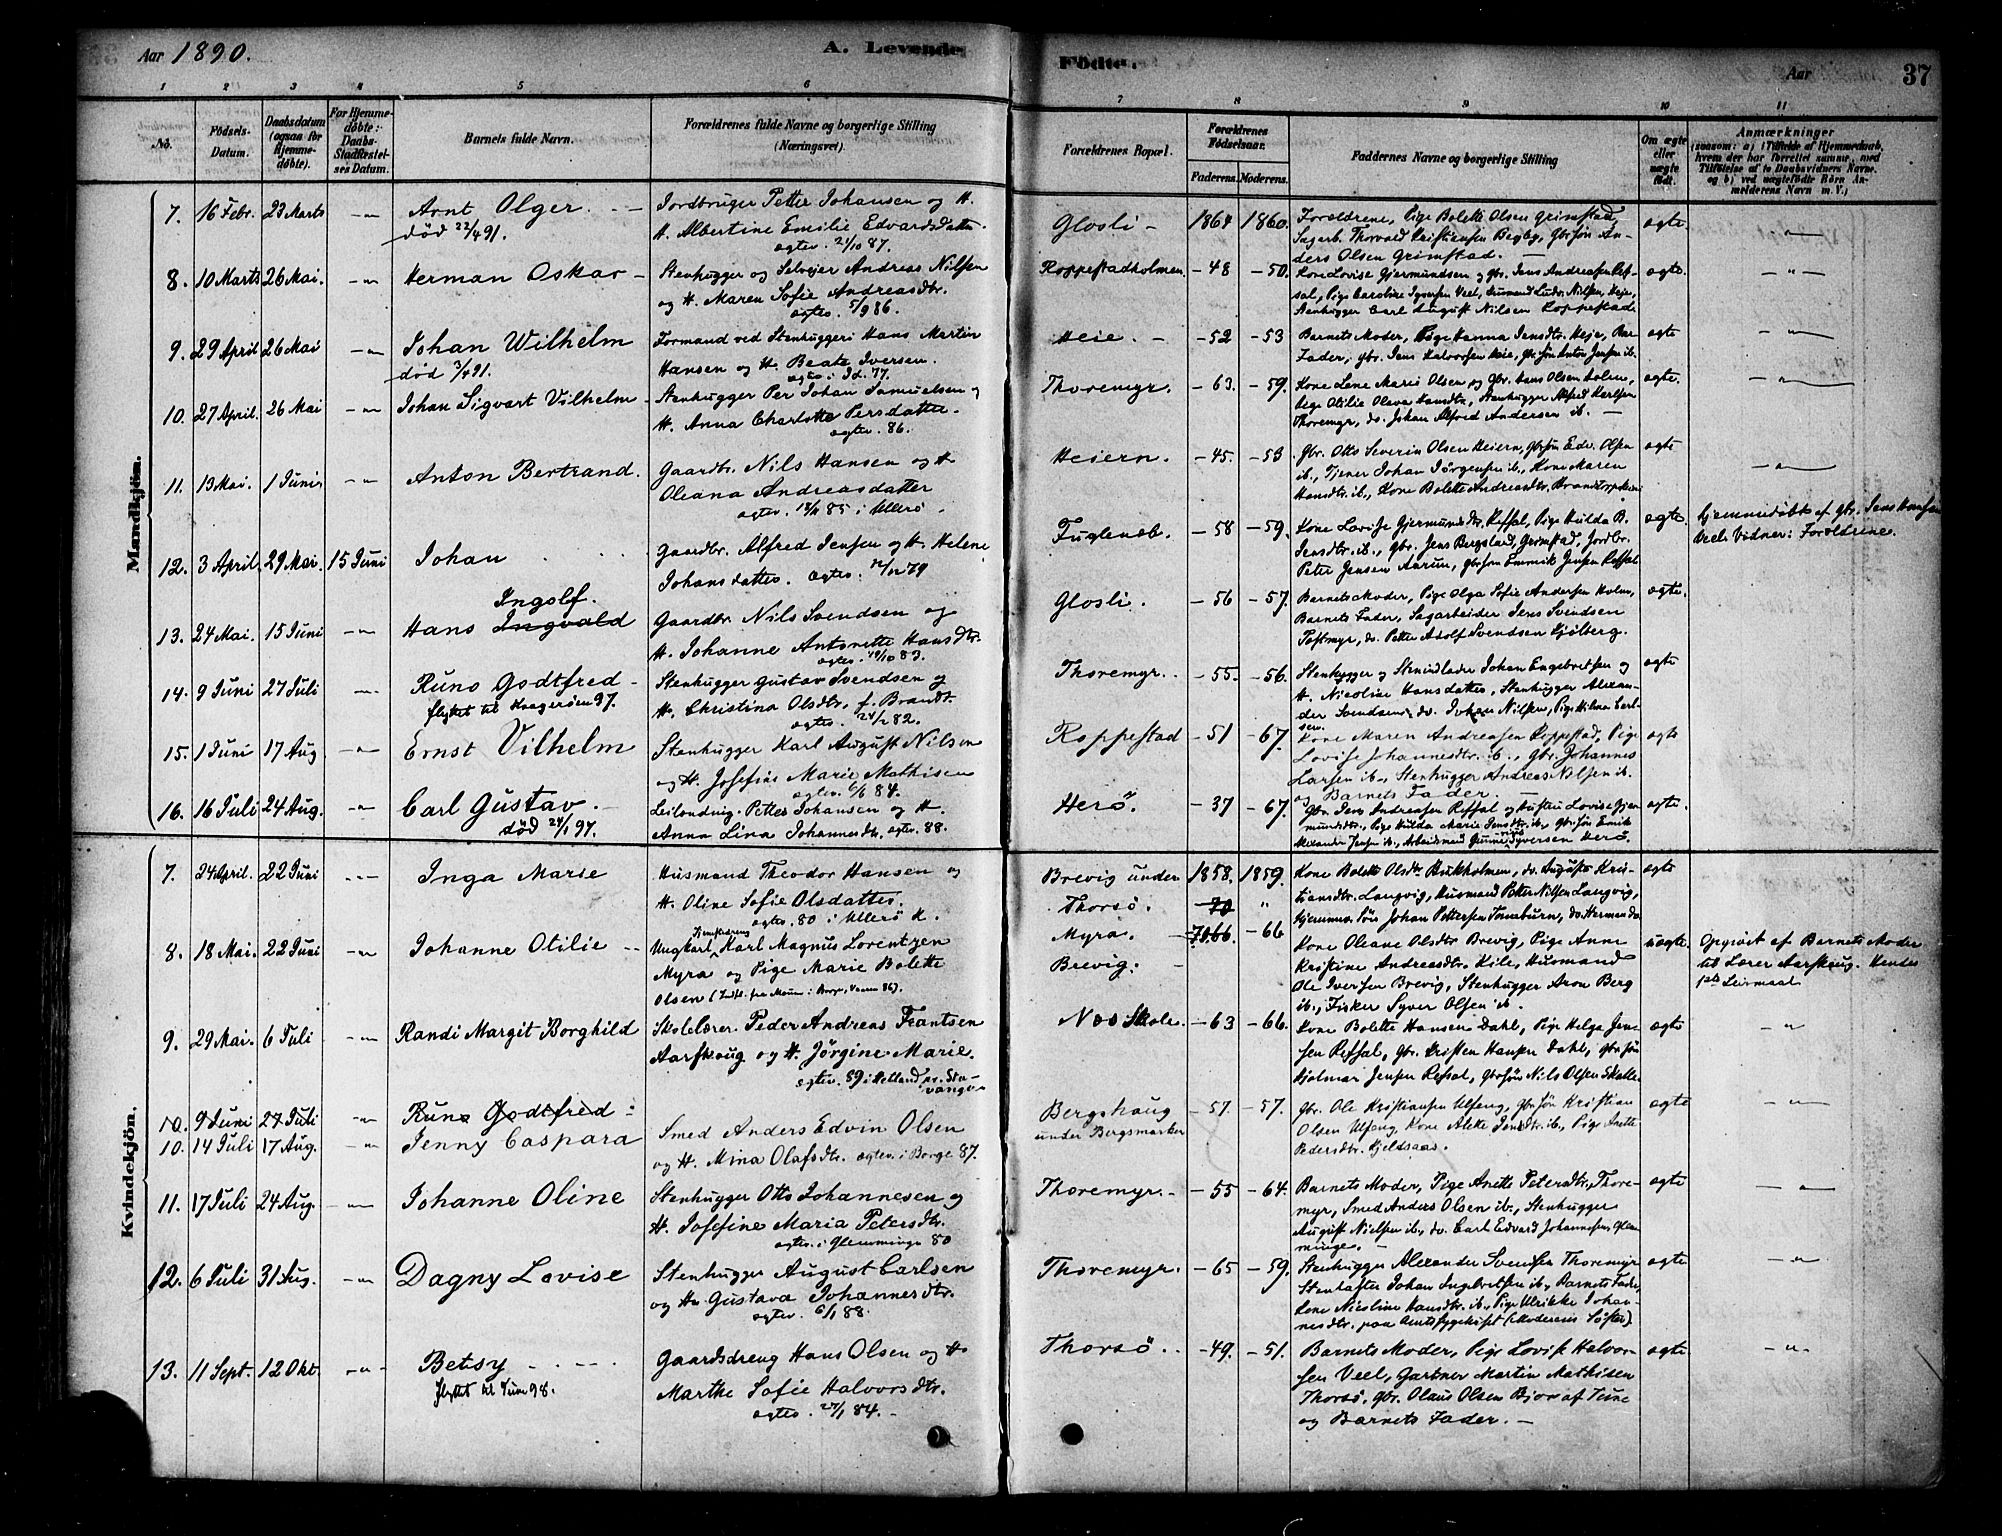 Aar 1890.
A. Levende
Fødte.
Aar
37
1 2 3 4 5 6 7 8 9 10 11
No.
Fødsels-
Datum.
Daabsdatum
(ogsaa for
Hjemme-
døbte).
For Hjemme-
døbte:
Daabs-
Stadfæstel-
ses Datum.
Barnets fulde Navn.
Forældrenes fulde Navne og borgerlige Stilling
(Næringsvei).
Forældrenes Bopæl.
Forældrenes
Fødselsaar.
Faderens. Moderens.
Faddernes Navne og borgerlige Stilling
Om ægte
eller
uægte
født.
Anmærkninger
(saasom: a) i Tilfælde af Hjemmedaab,
hvem der har forrettet samme, med
Tilføielse af to Daabsvidners Navne,
og b) ved uægtefødte Børn An-
melderens Navn m. V.)
Mandkjøn.
7. 16 Febr. 23 Marts Arnt Olger.
død 22/4 91.
Jordbruger Petter Johansen og H.
H. Albertine Emilie Edvardsdatter.
ægtev. 21/10 87.
Glosli 1864 1860.
Forældrene, Pige Bolette Olsen Grimstad,
Sagarb. Thorvald Kristiansen Begby, Gbr.søn An-
ders Olsen Grimstad.
ægte.
8. 10 Marts 26 Mai. Herman Oskar
Stenhugger og Selveier Andreas Nilsen
og H. Maren Sofie Andreasdtr.
ægtev. 5/9 86.
Roppestadholmen. -48 -50.
Kone Lovise Gjermundsen og gbr. Jens Andreasen Ref-
sal, Pige Caroline Syversen Veel, Husmand Ludv. Nilsen, Heje,
Stenhugger Carl August Nilsen Roppestad.
ægte.
9. 29 April 26 Mai Johan Wilhelm
død 3/4 91.
Formand ved Stenhuggeri Hans Martin
Hansen og H. Beate Iversen.
ægtev. i Id. 77.
Heie. -52 -53
Barnets Moder, Pige Hanna Jensdtr. Heje, Bar.
Fader, gbr. Jens Halvorsen Heie, gbr.søn Anton Jensen ib.
ægte
10. 27 April. 26 Mai Johan Sigvart Vilhelm
Stenhugger Per Johan Samuelsen og
H. Anna Charlotte Persdatter.
ægtev. 86.
Thoremyr. -63. -59.
Kone Lene Marie Olsen og gbr. Hans Olsen Holm,
Pige Otilie Olava Hansdtr., Stenhugger Alfred Karlsen
Thoremyr, do. Johan Alfred Andersen ib.
ægte.
11. 13 Mai. 1 Juni Anton Bertrand.
Gaardbr. Nils Hansen og H
Oleana Andreasdatter
ægtev. 85 i Ullerø.
Heiern. -45. -53
Gbr. Otto Severin Olsen Heiern, gbr.søn Edv. Olsen
ib., Tjener Johan Jörgensen ib., Kone Maren
Hansdtr. ib., Kone Bolette Andreasdtr.
ægte.
12. 3 April. 29 Mai. 15 Juni Johan
Gaardbr. Alfred Jensen og H. Helene
Johansdatter. ægtev. 79
Fuglenæb. -58 -59.
Kone Lovise Gjermundsdtr. Refsal, Pige Hulda B.
Jensdtr. ib., gbr. Jens Bergstad, Grimstad, Jordbr.
Peter Jensen Aarum, gbr.søn Emmerik Jensen Refsal
ægte.
Hjemmedøbt af gbr. Jens Hansen
Veel. Vidner: Forældrene.
13. 24 Mai. 15 Juni Hans Ingvald Ingolf.
Gaardbr. Nils Svendsen og
H. Johanne Antonette Hansdtr.
ægtev. 19/10 83.
Glosli. -56 -57.
Barnets Moder, Pige Olga Sofie Andersen Holm,
Barnets Fader, Sagarbeider Jens Svendsen
Postmyr, do. Petter Adolf Svendsen Kjølberg.
ægte.
14. 9 Juni 27 Juli Runo Godtfred
flyttet til Kragerøen 97.
Stenhugger Gustav Svendsen og
H. Christina Olsdtr. f. Brandt.
ægtev. 24/2 82.
Thoremyr. -55. -56.
Stenhugger og Stenindlader Johan Engebretsen og
H. Nicoline Hansdatter, Stenhugger Alexan-
der Svendsen, do. Johan Nilsen, Pige Hilma Carl-
sen.
ægte
15. 1 Juni 17 Aug Ernst Vilhelm
Stenhugger Karl August Nilsen
og H. Josefine Marie Mathisen
ægtev. 6/6 84.
Roppestad -51 -67.
Kone Maren Andreasen Roppestad, Pige
Lovise Johannesdtr. ib., gbr. Johannes
Larsen ib., Stenhugger Andreas Nilsen ib.
og Barnets Fader.
ægte
16. 16 Juli 24 Aug. Carl Gustav.
død 24/1 97.
Leilænding Petter Johansen og H.
Anna Lina Johannesdtr. ægtev. 88.
Herö. -37 -67.
Gbr. Jens Andreasen Refsal og Hustru Lovise Gjer-
mundsdtr., Pige Hulda Marie Jensdtr. ib., Gbr.søn Emrik
Alexander Jensen ib., Arbeidsmand Gunerius Syversen Herö.
ægte.
Kvindekjøn.
7. 24 April. 22 Juni Inga Marie
Husmand Theodor Hansen og
H. Oline Sofie Olsdatter.
ægtev. 80 i Ullerö K.
Brevig under
Thorsö. 1858. 1859.
70
Kone Bolette Olsdtr. Bukholmen, do. Auguste Kris-
tiansdtr. Langvig, Husmand Petter Nilsen Langvig,
ægte
8. 18 Mai. 22 Juni Johanne Otilie
Ungkarl Karl Magnus Lorentzen
Myra og Pige Marie Bolette
Olsen
Myra.
Brevig. -66
Kone Oleane Olsdtr Brevig, Pige Anne
Kristine Andreasdtr. Kile, Husmand
Ole Iversen Brevig, Stenhugger Aron Berg
ib., Fisker Syver Olsen ib.
uægte.
Opgivet af Barnets Moder
til Lærer Aarskoug. Hendes
1ste Leirmaal
9. 29 Mai. 6 Juli Randi Margit Borghild
Skolelærer. Peder Andreas Frantsen
Aarskoug og H. Jörgine Marie.
ægtev. 89 i Hetland pr. Sta-
vanger
Næs Skole. -63 -66.
Kone Bolette Hansen Dahl, Pige Helga Jen-
sen Refsal, gbr. Kristen Hansen Dahl, gbr.søn
Hjalmar Jensen Refsal, gbr.søn Niels Olsen Skatte
ægte
10. 9 Juni 27 Juli Runo Godtfred
10. 14 Juli 17 Aug. Jenny Caspara
Smed Anders Edvin Olsen
og H. Mina Olafsdtr. ægtev. i Borge 87.
Bergshaug
under Bergsmarken -57. -57.
Gbr. Ole Kristiansen Ulfeng, gbr.søn Kristian
Olsen Ulfeng, Kone Alette Jensdtr. ib., Pige Anette
Pedersdtr. Kjeldsaas.
ægte
11. 17 Juli 24 Aug. Johanne Oline
Stenhugger Otto Johannesen og
H. Josefine Maria Petersdtr.
ægtev. i Glemminge 80
Thoremyr. -55 -64.
Barnets Moder, Pige Anette Petersdtr. Thore-
myr, Smed Anders Olsen ib., Stenhugger
August Nielsen ib., do. Carl Edvard Johannesen, Glem-
minge.
ægte
12. 6 Juli 31 Aug. Dagny Lovise
Stenhugger August Carlsen
og H. Gustava Johannesdtr.
ægtev. 6/1 88.
Thoremyr. -65 -59.
Stenhugger Alexander Svensen Thoremyr
Johan Ingebretsen ib., Barnets Fader,
Kone Nicoline Hansdtr. ib., Pige Ulrikke Johan-
nesdtr. paa Amtssygehuset (Moderens Søster)
ægte
13. 11 Sept. 12 Okt. Betsy
flyttet til Tune 98.
Gaardsdreng Hans Olsen og H
Marthe Sofie Halvorsdtr.
ægtev. 27/1 84.
Thorsö. -49. -51.
Barnets Moder, Pige Lovise Halvor-
sen Veel, Gartner Martin Mathisen
Thorsö, gbr. Olaus Olsen Bjor af Tune
og Barnets Fader.
ægte